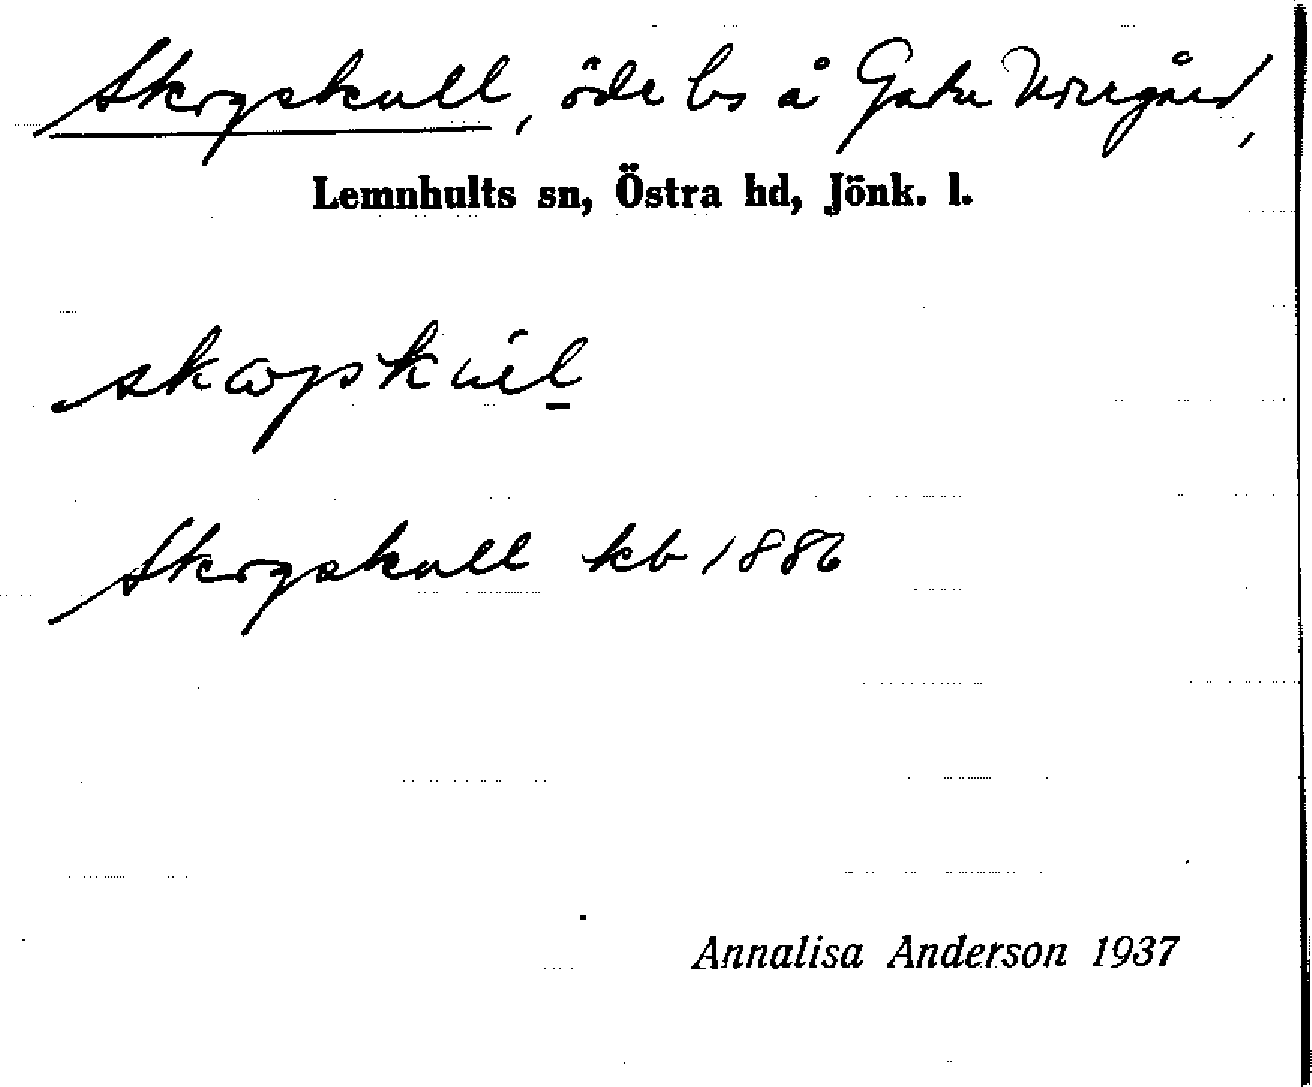 Skogskull, öde bs å Gatu Norrgård,
Lemnhults sn, Östra hd, Jönk. l.
Skogskull kb 1886
Annalisa Anderson 1937